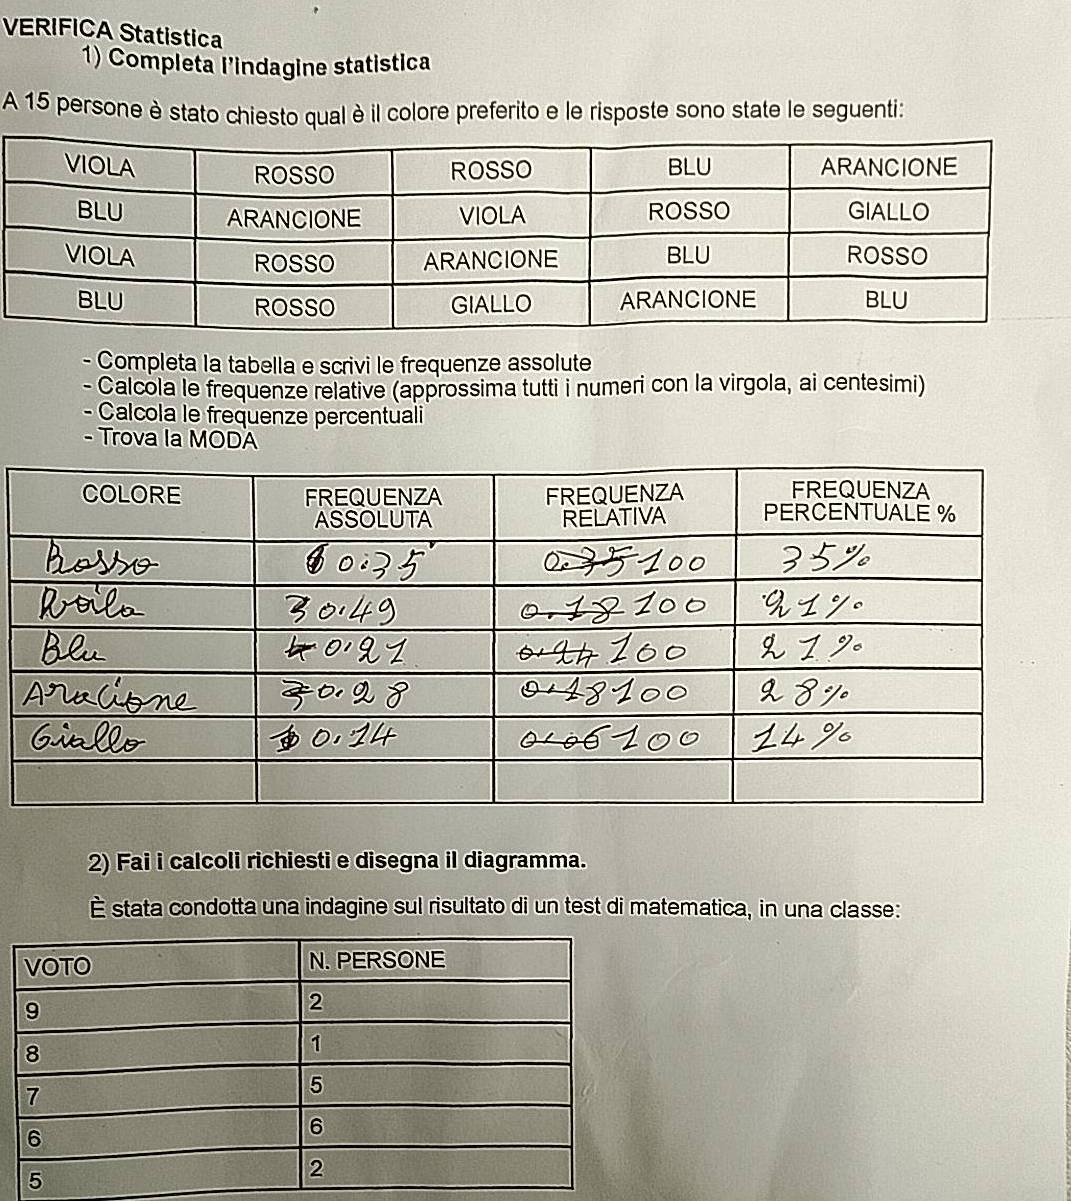 VERIFICA Statistica
1) Completa l'indagine statistica
A 15 persone è stato chiesto qual è il colore preferito e le risposte sono state le seguenti:
VIOLA ROSSO ROSSO BLU ARANCIONE
BLU ARANCIONE VIOLA ROSSO GIALLO
VIOLA ROSSO ARANCIONE BLU ROSSO
BLU ROSSO GIALLO ARANCIONE BLU
- Completa la tabella e scrivi le frequenze assolute
- Calcola le frequenze relative (approssima tutti i numeri con la virgola, ai centesimi)
- Calcola le frequenze percentuali
- Trova la MODA
COLORE FREQUENZA ASSOLUTA FREQUENZA RELATIVA FREQUENZA PERCENTUALE %
Rosso 0.35 0.35 100 35%
3 0.49 0.18 100 21%
Blu 4 0.21 0.24 100 21%
Aracione 3 0.28 0.18 100 28%
Giallo 0.14 0.06 100 14%
2) Fai i calcoli richiesti e disegna il diagramma.
È stata condotta una indagine sul risultato di un test di matematica, in una classe:
VOTO N. PERSONE
9 2
8 1
7 5
6 6
5 2